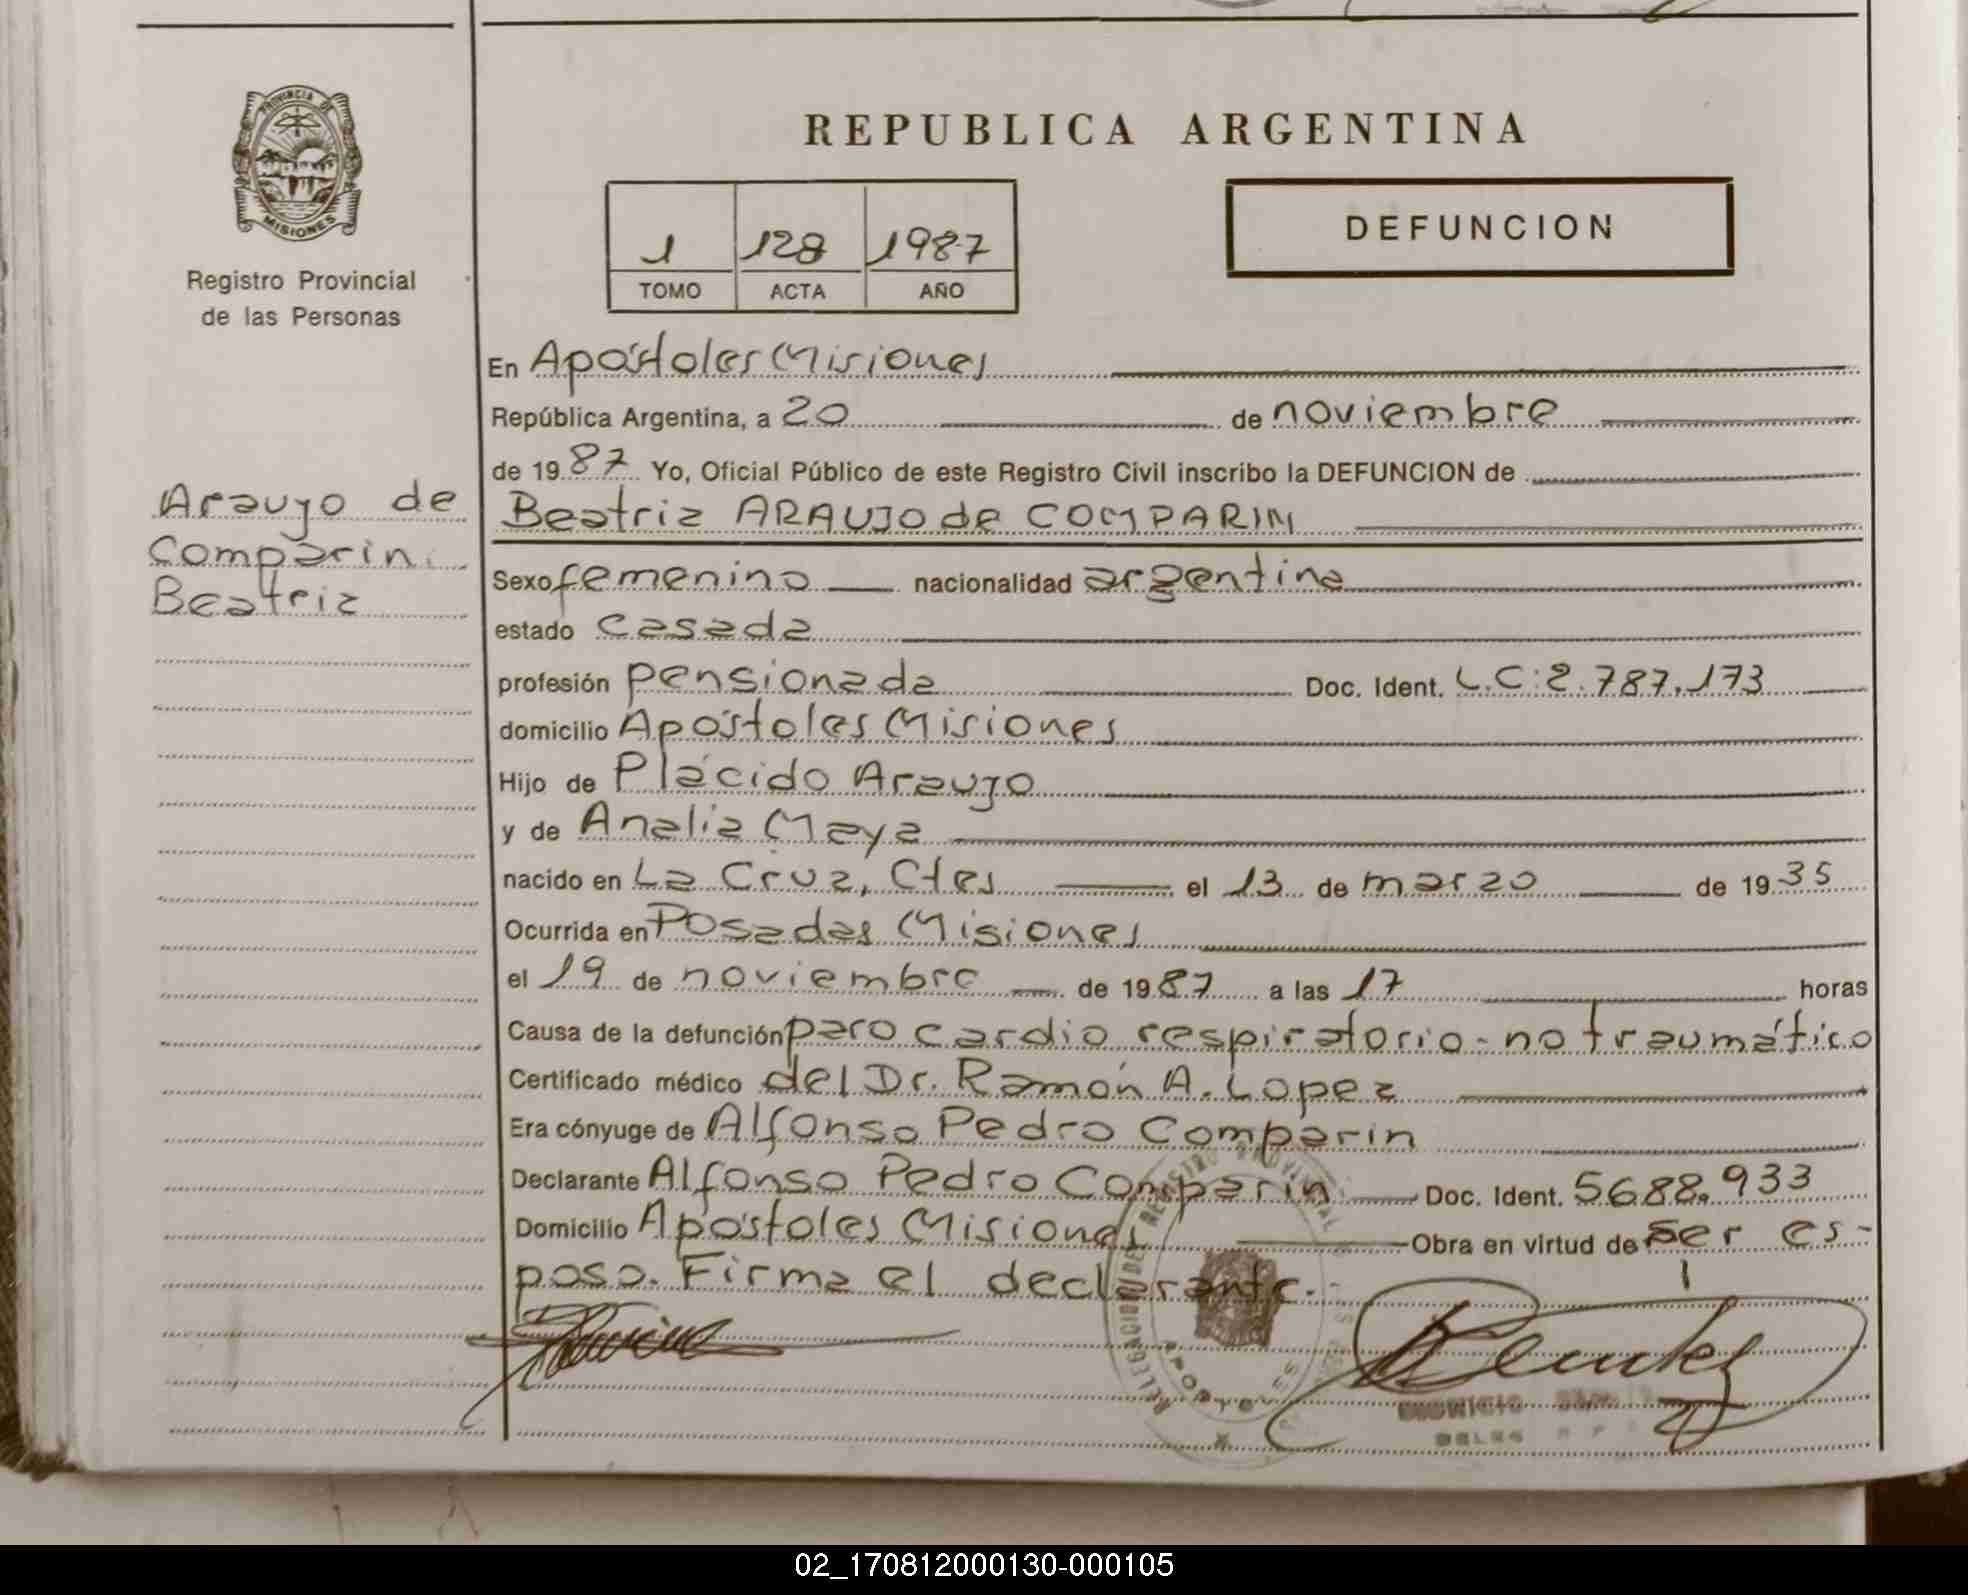 PROVINCIA DE
MISIONES
Registro Provincial
de las Personas
Araujo de
Comparin.
Beatriz
REPUBLICA ARGENTINA
1 128 1987
TOMO ACTA AÑO
DEFUNCION
En Apóstoles Misiones
República Argentina, a 20 de noviembre
de 1987 Yo, Oficial Público de este Registro Civil inscribo la DEFUNCION de
Beatriz ARAUJO de COMPARIN
Sexo femenino nacionalidad argentina
estado casada
profesión pensionada Doc. Ident. L.C: 2.787.173
domicilio Apóstoles Misiones
Hijo de Plácido Araujo
y de Analia Maya
nacido en La Cruz, Ctes el 13 de marzo de 1935
Ocurrida en Posadas Misiones
el 19 de noviembre de 1987 a las 17 horas
Causa de la defunción paro cardio respiratorio-no traumático
Certificado médico del Dr. Ramón A. Lopez
Era cónyuge de Alfonso Pedro Comparin
Declarante Alfonso Pedro Comparin Doc. Ident. 5688.933
Domicilio Apóstoles Misiones Obra en virtud de ser es-
poso. Firma el declarante.
02_170812000130-000105